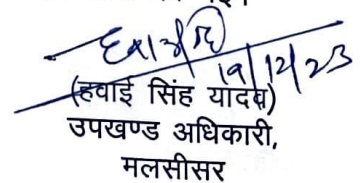 19/12/23
(हवाई सिंह यादव)
उपखण्ड अधिकारी,
मलसीसर